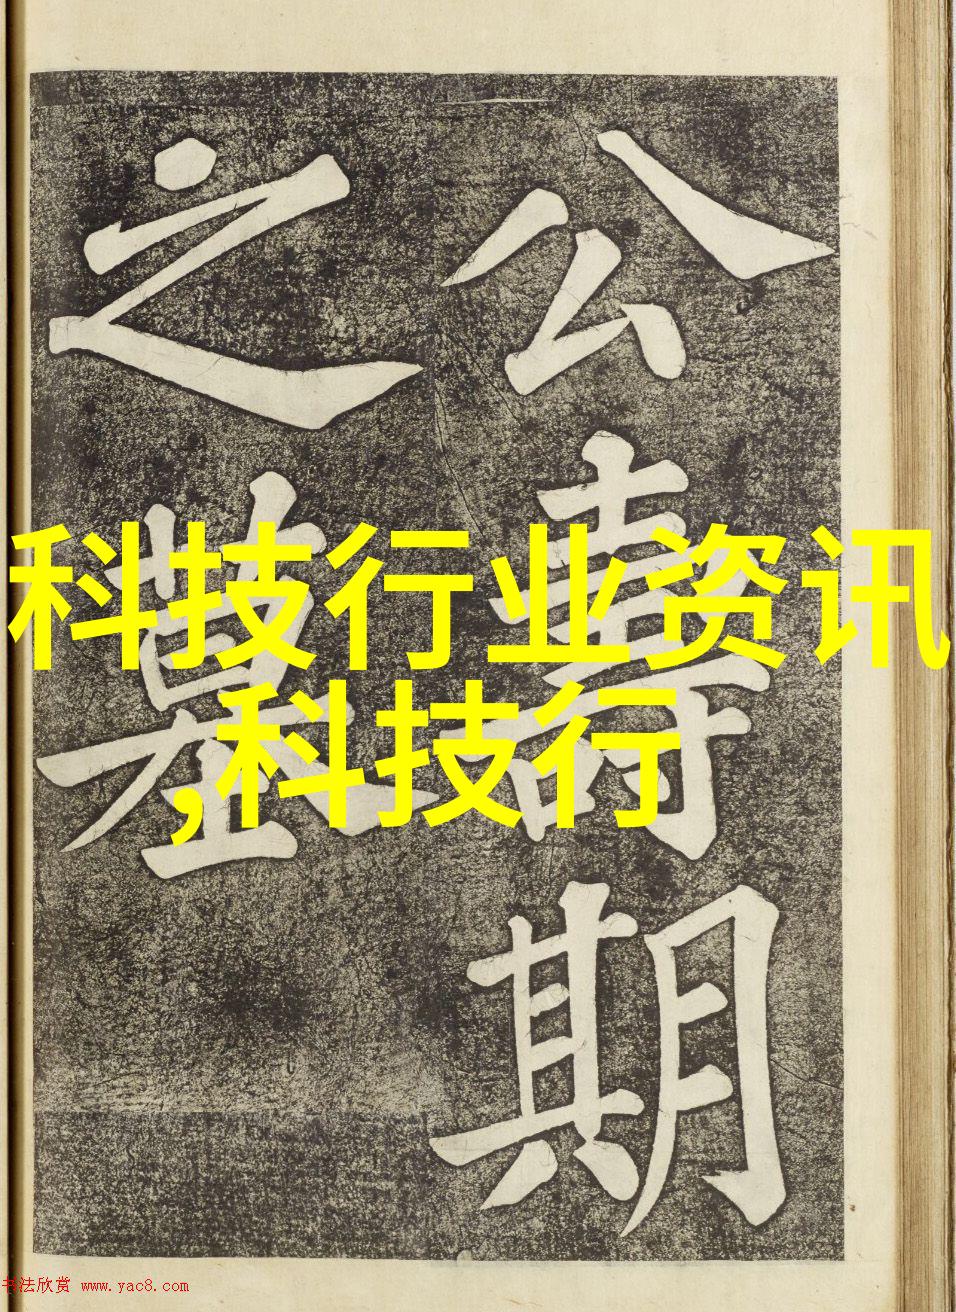 公壽期
之墓
科技行业资讯
,科技行
书法欣赏 www.yac8.com